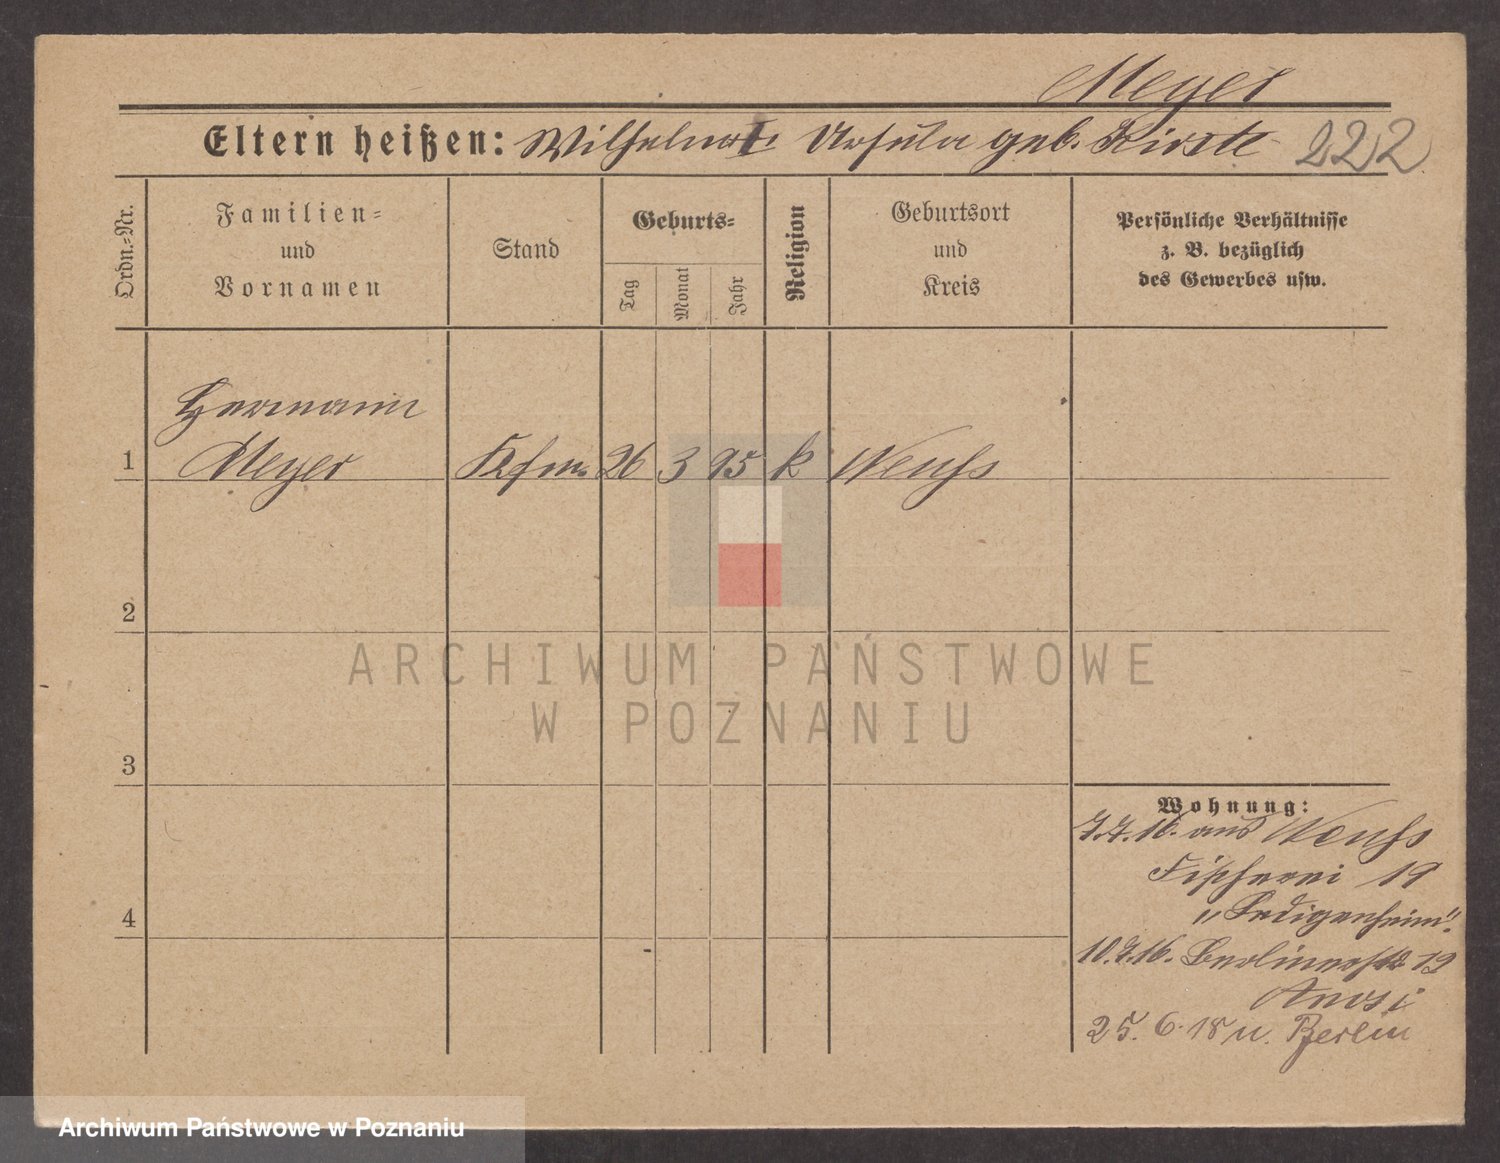 Meyer
Eltern heißen: Wilhelm u. Ursula geb. Kirste 222
Ordn.-Nr.
Familien-
und
Vornamen
Stand
Geburts-
Tag
Monat
Jahr
Religion
Geburtsort
und
Kreis
Persönliche Verhältnisse
z. B. bezüglich
des Gewerbes usw.
Hermann
1 Meyer Kfm. 26 3 95 k Neuss
2
ARCHIWUM PAŃSTWOWE
W POZNANIU
3
Wohnung:
7.7.16. aus Neuss
Fischerei 19
"Ledigenheim".
4
10.7.16. Berlinerstr 19
25. 6. 18 n. Berlin
Archiwum Państwowe w Poznaniu